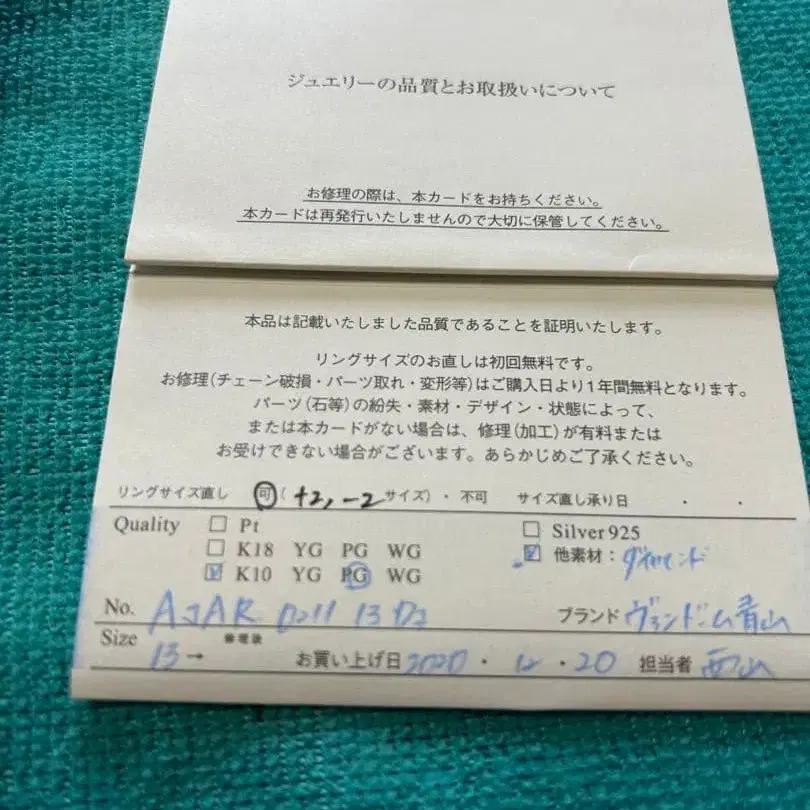 ジュエリーの品質とお取扱いについて
お修理の際は、本カードをお持ちください。
本カードは再発行いたしませんので大切に保管してください。
本品は記載いたしました品質であることを証明いたします。
リングサイズのお直しは初回無料です。
お修理(チェーン破損・パーツ取れ・変形等)はご購入日より1年間無料となります。
パーツ(石等)の紛失・素材・デザイン・状態によって、
または本カードがない場合は、修理(加工)が有料または
お受けできない場合がございます。あらかじめご了承ください。
リングサイズ直し 可(+2,-2サイズ)・不可 サイズ直し承り日 ・ ・
Quality □ Pt □ Silver925
□ K18 YG PG WG ☑ 他素材:ダイヤモンド
☑ K10 YG PG WG
No. AJAR 13 ブランド ヴァンドーム青山
Size 13→ 修理後 お買い上げ日 2020・12・20 担当者 西山